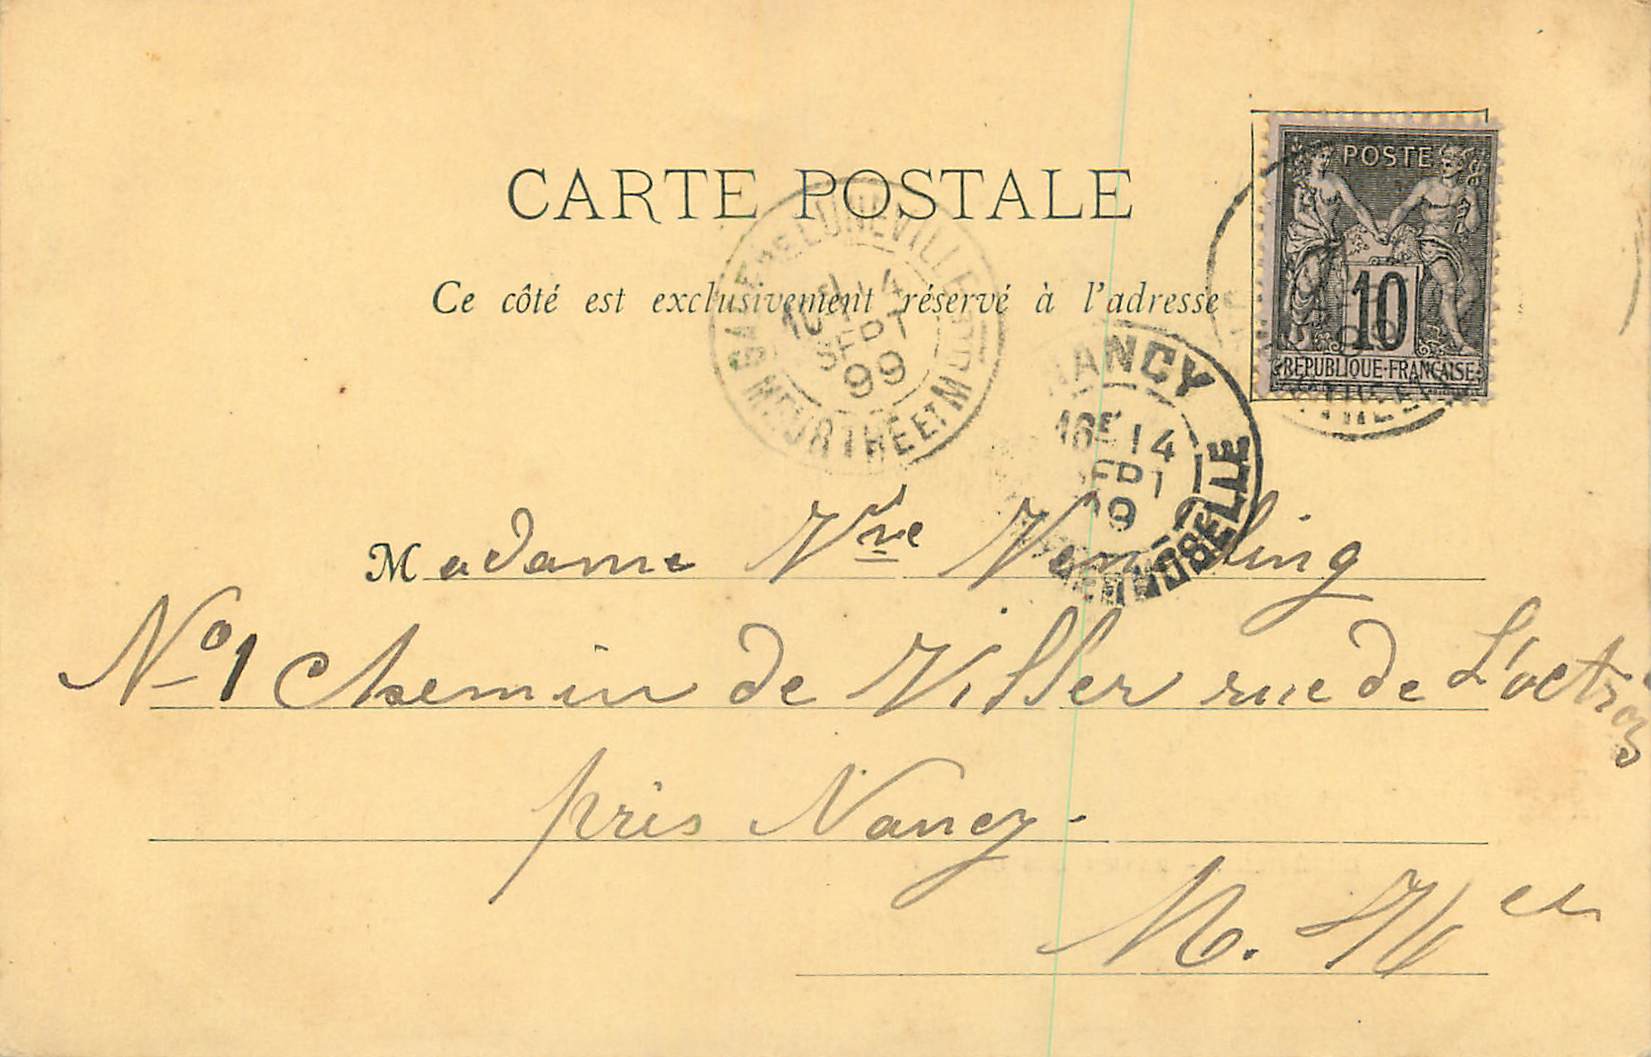 CARTE POSTALE
Ce côté est exclusivement réservé à l'adresse
POSTE
10
REPUBLIQUE-FRANCAISE
GARE DE LUNEVILLE
10E 14
SEPT
99
MEURTHE ET M
NANCY
16E 14
SEPT
99
MOSELLE
Madame Vve
No 1 Chemin de Viller rue de L'octroy
près Nancy.
M. Mel